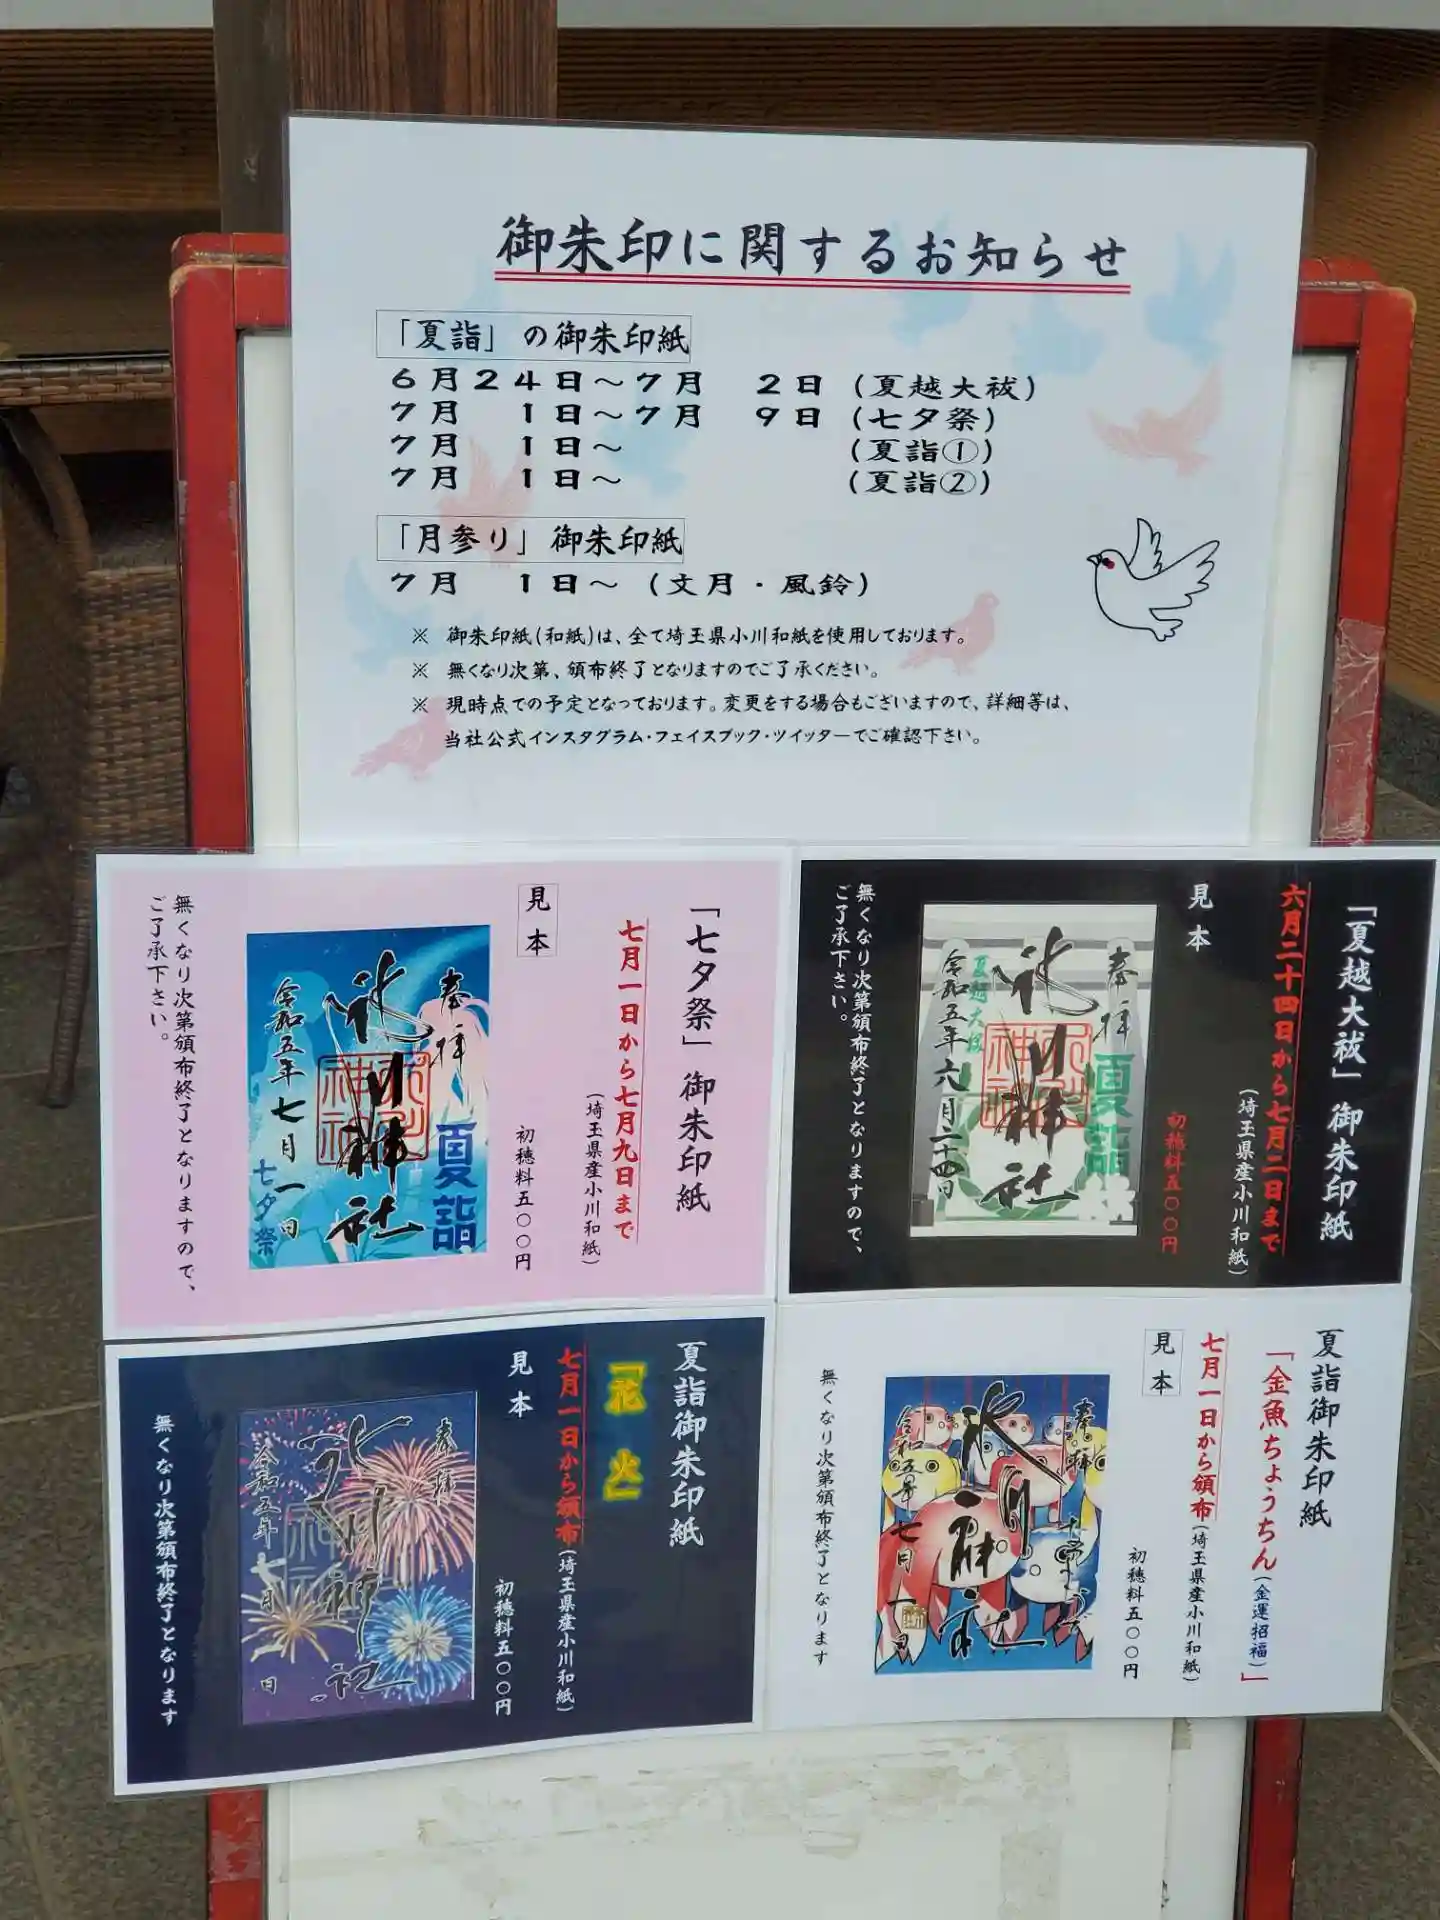 御朱印に関するお知らせ
「夏詣」の御朱印紙
6月24日～7月 2日(夏越大祓)
7月 1日～7月 9日(七夕祭)
7月 1日～ (夏詣①)
7月 1日～ (夏詣②)
「月参り」御朱印紙
7月 1日～(文月・風鈴)
※ 御朱印紙(和紙)は、全て埼玉県小川和紙を使用しております。
※ 無くなり次第、頒布終了となりますのでご了承ください。
※ 現時点での予定となっております。変更をする場合もございますので、詳細等は、
当社公式インスタグラム・フェイスブック・ツイッターでご確認下さい。
「夏越大祓」御朱印紙
六月二十四日から七月二日まで
(埼玉県産小川和紙)
初穂料五〇〇円
見本
奉拝
夏詣
氷川神社
氷川神社
夏越大祓
令和五年六月二十四日
無くなり次第頒布終了となりますので、
ご了承下さい。
「七夕祭」御朱印紙
七月一日から七月九日まで
(埼玉県産小川和紙)
初穂料五〇〇円
見本
奉拝
夏詣
氷川神社
氷川神社
令和五年七月一日
七夕祭
無くなり次第頒布終了となりますので、
ご了承下さい。
夏詣御朱印紙
「金魚ちょうちん(金運招福)」
七月一日から頒布(埼玉県産小川和紙)
初穂料五〇〇円
見本
奉拝
氷川神社
令和五年七月一日
無くなり次第頒布終了となります
夏詣御朱印紙
「花火」
七月一日から頒布(埼玉県産小川和紙)
初穂料五〇〇円
見本
奉拝
氷川神社
令和五年七月一日
無くなり次第頒布終了となります